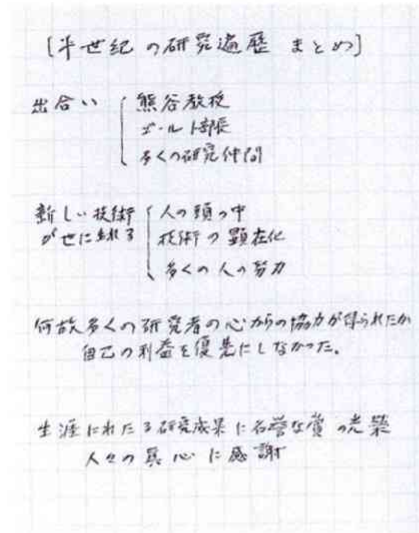 [半世紀の研究遍歴 まとめ]
出合い 熊谷教授
ゴールト部長
多くの研究仲間
新しい技術 人の頭の中
が世に生れる 技術の顕在化
多くの人の努力
何故多くの研究者の心からの協力が得られたか
自己の利益を優先にしなかった。
生涯にわたる研究成果に名誉な賞の光榮
人々の真心に感謝